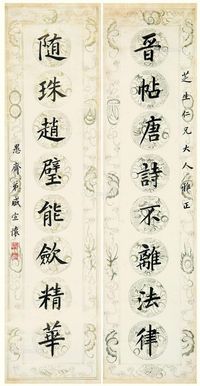 芝生仁兄大人雅正
晋帖唐詩不離法律
随珠趙璧能斂精華
愚齋弟盛宣懷